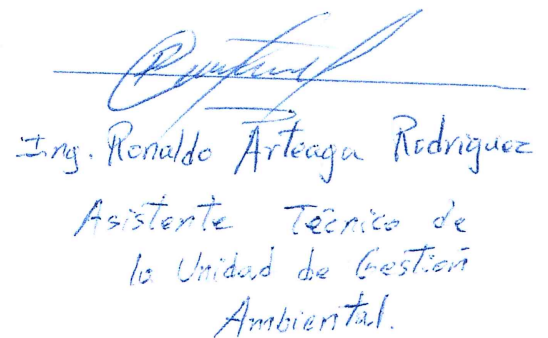 Ing. Ronaldo Arteaga Rodriguez
Asistente Técnico de
la Unidad de Gestión
Ambiental.